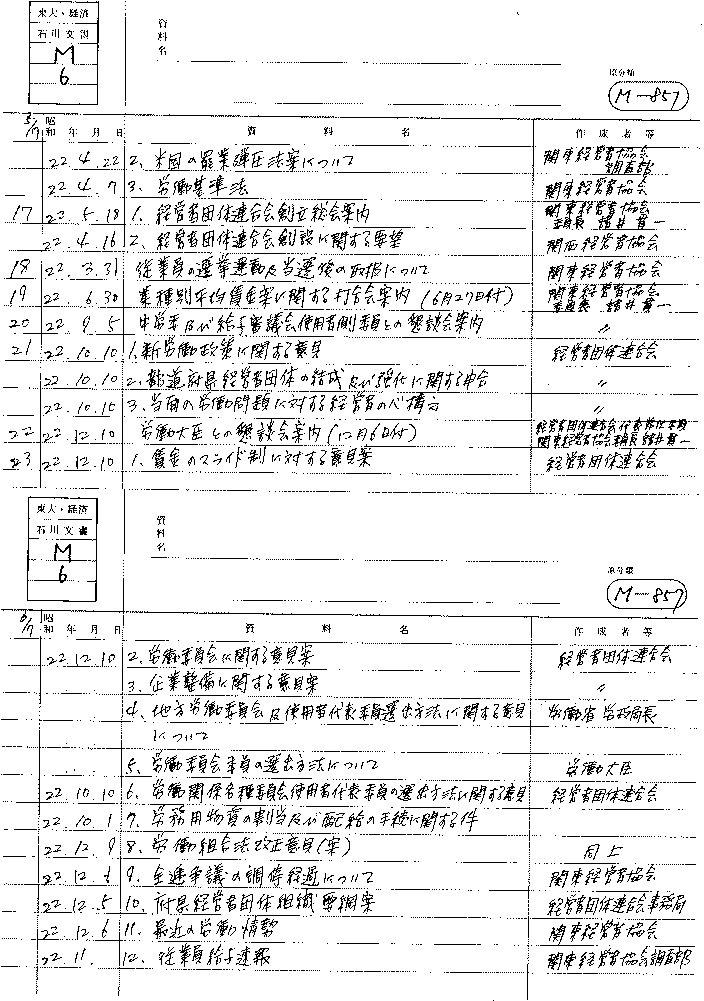 東大・経済
石川文書
M
6
資料名
原分類
M-857
5/17 昭和 年 月 日 資 料 名 作 成 者 等
22.4.22 2、米国の罷業弾圧法案について 関東経営者協会調査部
22.4.7 3、労働基準法 関東経営者協会
17 22.5.18 1、経営者団体連合会創立総会案内 関東経営者協会 諸井貫一
22.4.16 2、経営者団体連合会創設に関する要望 関西経営者協会
18 22.3.31 従業員の選挙運動及当選後の取扱について 関東経営者協会
19 22.6.30 業種別平均賃金案に関する打合会案内(6月27日付) 関東経営者協会 諸井貫一
20 22.9.5 中労委及び給与審議会使用者側委員との懇談会案内 〃
21 22.10.10 1、新労働政策に関する意見 経営者団体連合会
22.10.10 2、都道府県経営者団体の結成及び強化に関する申合 〃
22.10.10 3、当面の労働問題に対する経営者の心構 〃
22 22.12.10 労働大臣との懇談会案内(12月6日付) 経営者団体連合会代表常任委員 関東経営者協会 諸井貫一
23 22.12.10 1、賃金のスライド制に対する意見案 経営者団体連合会
東大・経済
石川文書
M
6
資料名
原分類
M-857
6/17 昭和 年 月 日 資 料 名 作 成 者 等
22.12.10 2、労働委員会に関する意見案 経営者団体連合会
3、企業整備に関する意見案 〃
4、地方労働委員会及使用者代表委員選出方法に関する意見 労働省労政局長
について
5、労働委員会委員の選出方法について 労働大臣
22.10.10 6、労働関係各種委員会使用者代表委員の選出方法に関する意見 経営者団体連合会
22.10.1 7、労務用物資の割当及び配給の手続に関する件
22.12.9 8、労働組合法改正意見(案) 同上
22.12. 9、全逓争議の調停経過について 関東経営者協会
22.12.5 10、府県経営者団体組織要綱案 経営者団体連合会事務局
22.12.6 11、最近の労働情勢 関東経営者協会
22.11. 12、従業員給与速報 関東経営者協会調査部